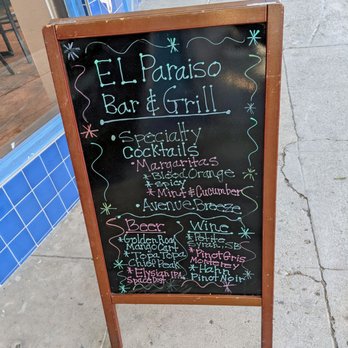 EL Paraiso
Bar & Grill
Specialty
Cocktails
Margaritas
Blood Orange
Spicy
Mint & Cucumber
Avenue Breeze
Beer
Golden Road
Mango Cart
Topa Topa
Chief Peak
Elysian IPA
Space Dust
Wine
Pinot Gris
Monterey
Hahn
Pinot Noir